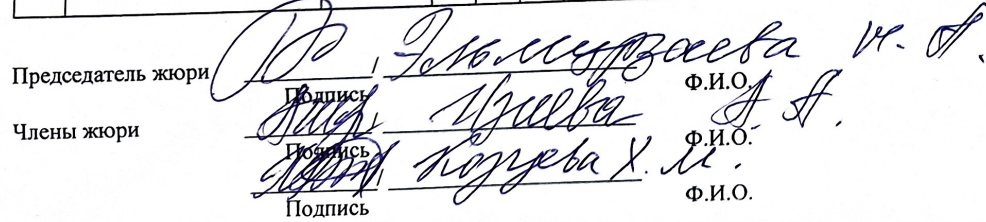 Председатель жюри Эльмурзаева И. А.
Подпись Ф.И.О.
Члены жюри Изиева А. А.
Подпись Ф.И.О.
Х. М.
Подпись Ф.И.О.